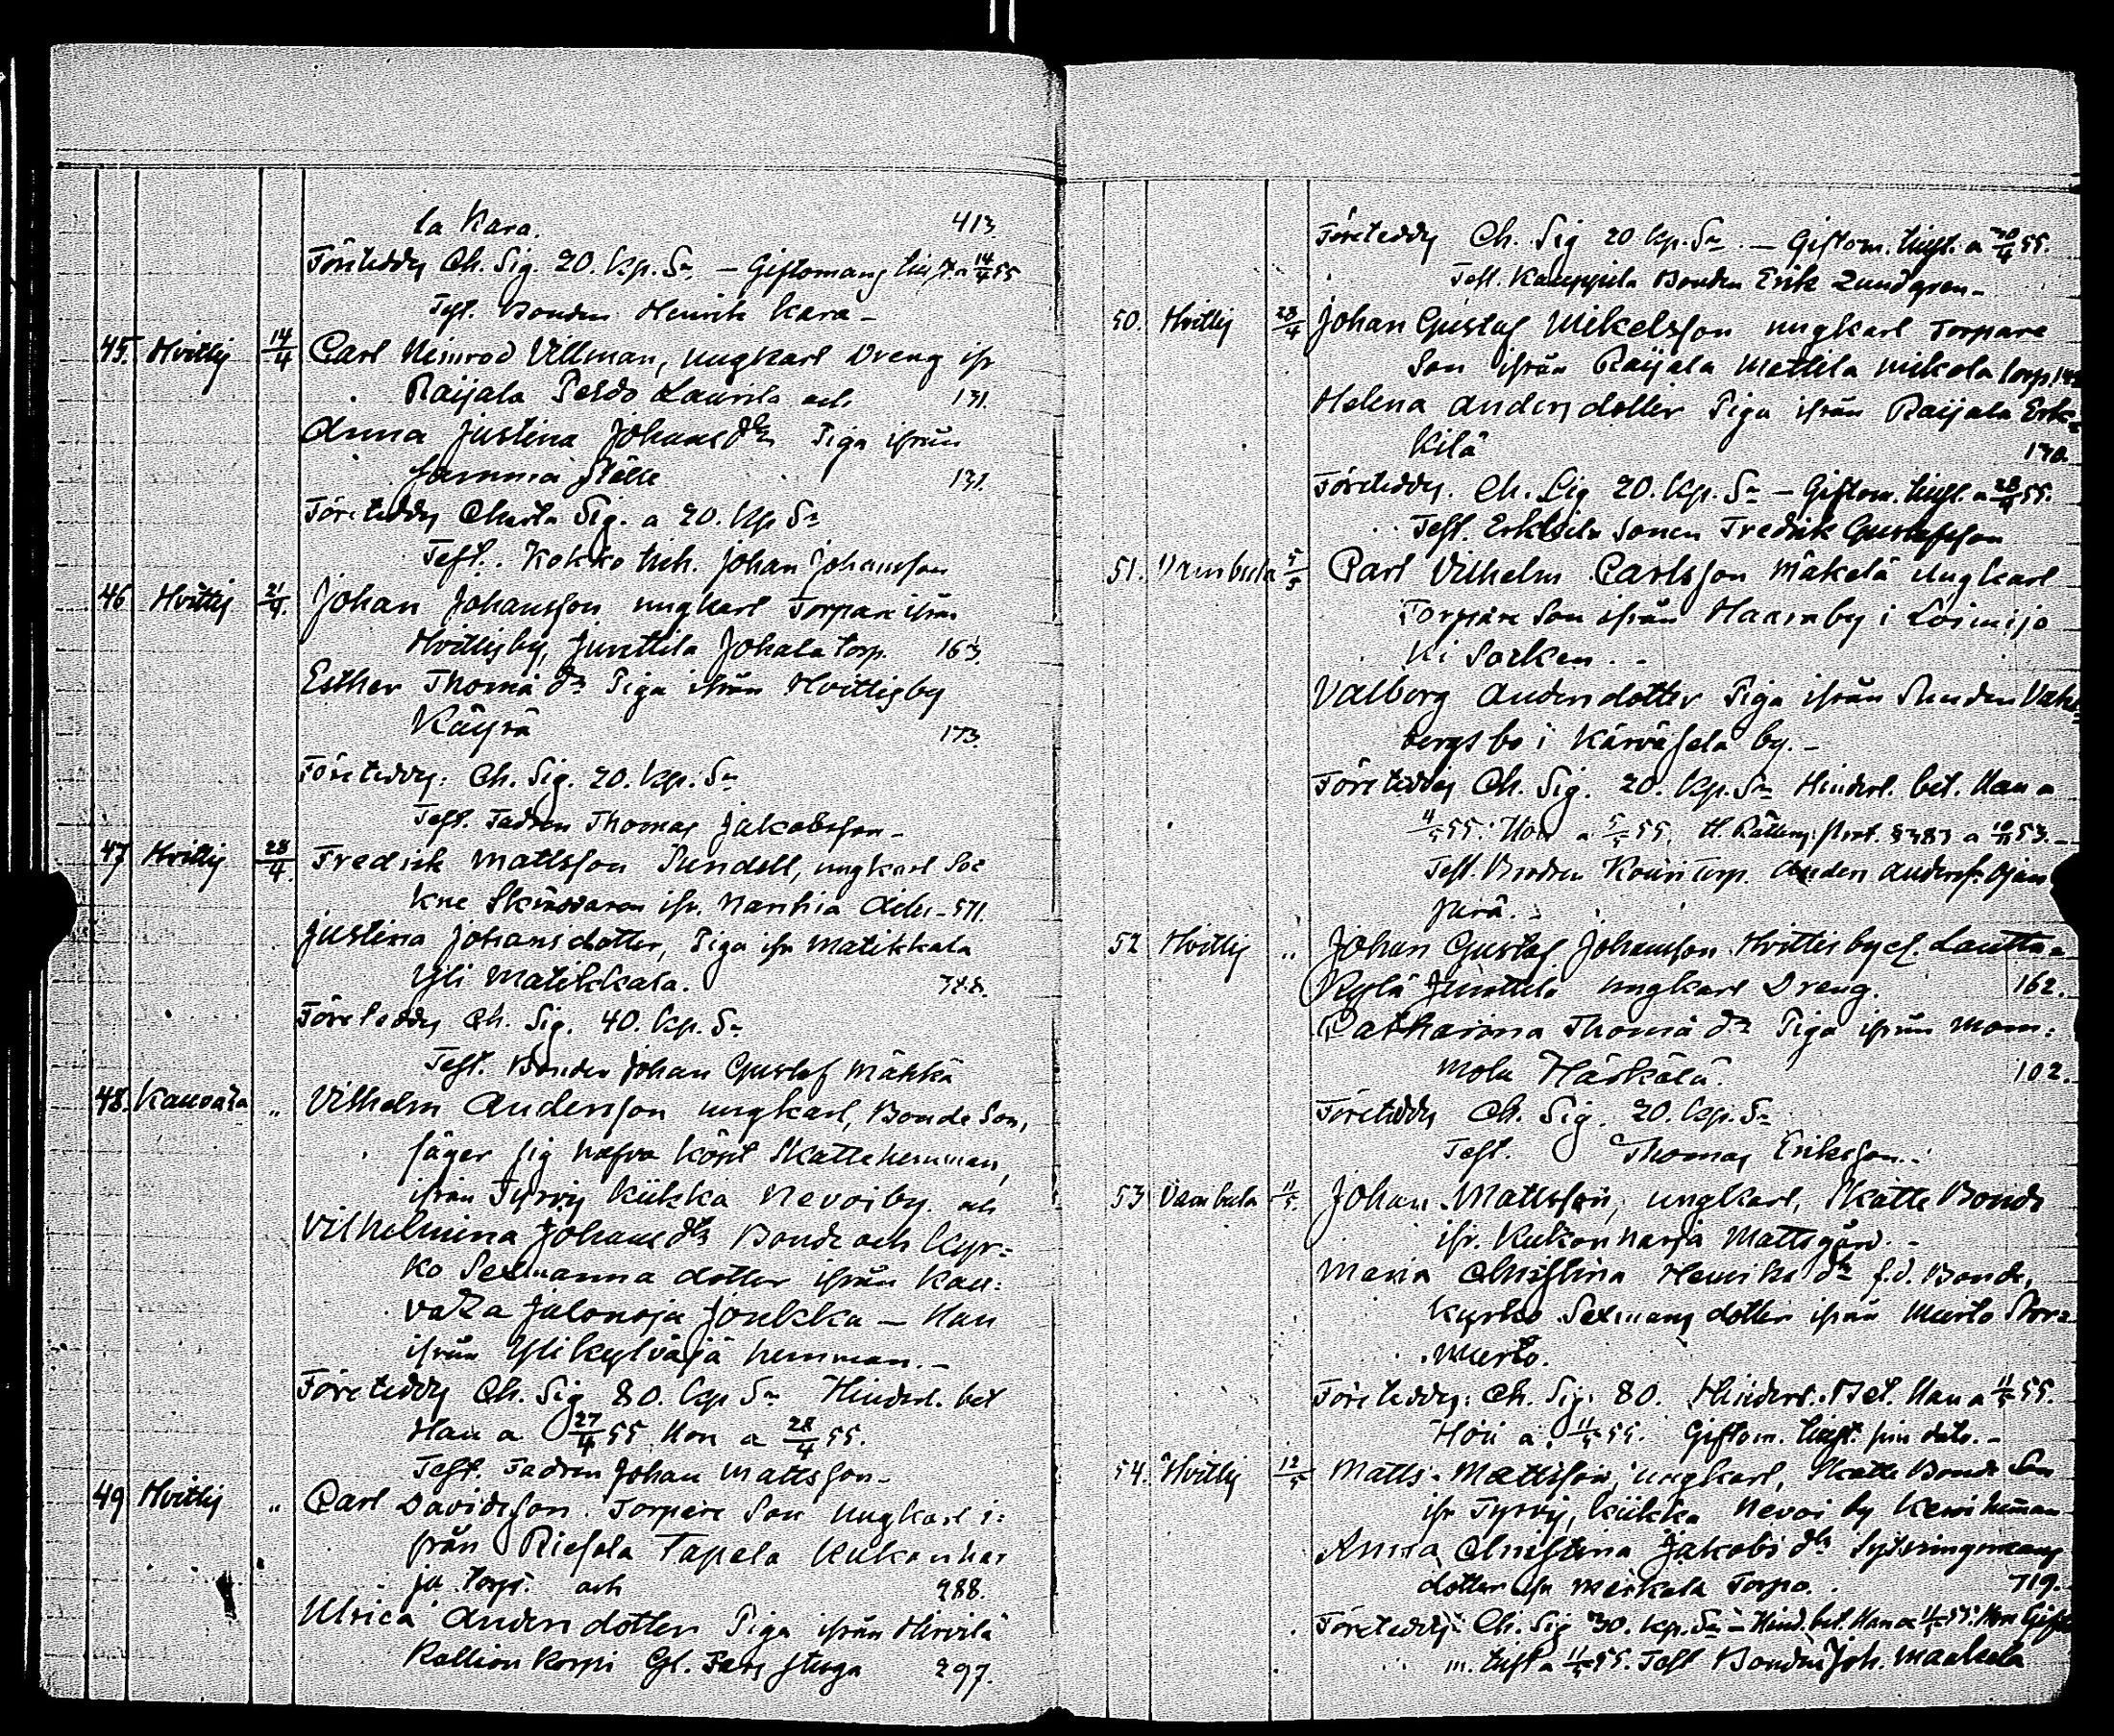 la Kara. 413.
Företeddes Ch. Sig. 20. kp. Sr. – Giftomans tillst. a 14/4 55
Test. Bonden Henrik Kara –
45. Hvittis 14/4 Carl Nimrod Villman, ungkarl Dreng ifr
Raijala Pesso Laurila och 131.
Anna Justina Johansdr Piga ifrån
samma ställe 131.
Företeddes Charta Sig. a 20. kp Sr
Test. Kokko Johan Johansson
46 Hvittis 21/4. Johan Johansson ungkarl Torpare ifrån
Hvittisby, Junttila Johala torp. 163.
Esther Thomä dr Piga ifrån Hvittisby
Käyrä 173.
Företeddes: Ch. Sig. 20. kp. Sr
Test. Fadren Thomas Jakobsson –
47 Hvittis 28/4. Fredrik Mattsson Sundell, ungkarl Soc
kne Skräddaren ifr. Nanhia 571.
Justina Johansdotter, Piga ifr Matikkala
Yli Matikkala.
Företeddes Ch. Sig. 40. kp. Sr
Test. Bonden Johan Gustaf Mäkkä
48. Kauvata „ Vilhelm Andersson ungkarl, Bonde Son,
säger sig hafva köpt Skattehemman,
ifrån Tyrvis Kiikka Nevoiby. och
Vilhelmina Johansdr Bonde och Kyr=
ko Sexmanna dotter ifrån Kau=
vaza Jalonoja Joukka – Han
ifrån Ylikylväjä hemman. –
Företeddes Ch. Sig 80. kp Sr Hindersl. bet
Han a 27/4 55. Hon a 28/4 55.
Test. Fadren Johan Mattsson –
49 Hvittis „ Carl Davidsson. Torpare Son Ungkarl i=
från Riesola Tapela Kukonhar
ja torp. och 288.
Ulrica Andersdotter Piga ifrån Hirvilä
Kallionkorpi Gl. Fars stuga 297.
Företeddes Ch. Sig 20. kp. Sr. – Giftom. tillst. a 20/4 55.
Test. Kauppila Bonden Erik Lundgren –
50. Hvittis 28/4 Johan Gustaf Mikelsson ungkarl Torpare
Son ifrån Raijala Mattila Mikola torp
Helena Andersdotter Piga ifrån Raijala Erk=
kilä 130.
Företeddes. Ch. Sig 20. kp. Sr – Giftom. tillst. a 28/4 55.
Test. Erkkilä Sonen Fredrik Gustafsson
51. Vambula 5/5 Carl Vilhelm Carlsson Mäkelä Ungkarl
Torpare Son ifrån Haaraby i Loimijo
ki Socken. –
Valborg Andersdotter Piga ifrån
bergs bo i Kärväselä by. –
Företeddes Ch. Sig. 20. kp. Sr Hindersl. bet. Han a
55. Hon a 5/5 55. Prot. § 383 a 53. –
Test. Brodren Kouri torp. Anders Andersson Ojan
perä. –
52 Hvittis „ Johan Gustaf Johansson Hvittis by Lautta=
kylä Junttila ungkarl Dreng. 162.
Catharina Thomä dr Piga ifrån Mom=
mola Härkälä. 102.
Företeddes Ch. Sig. 20. kp. Sr
Test. Thomas Eriksson. –
53 Vambula 11/5. Johan Mattsson, ungkarl, Skatte Bonde
ifr. Kukonharja Mattsgård. –
Maria Christina Henriks dr f.d. Bonde,
Kyrko Sexmans dotter ifrån Murto Stor=
Murto.
Företeddes: Ch. Sig. 80. Hindersl. Bet. Han a 11/5 55.
Hon a. 11/5 55. Giftom. tillst. sin dato. –
54. Hvittis 12/5 Matts Mattsson, ungkarl, Skatte Bonde Son
ifr Tyrvis, Kiikka Nevoi by hemman
Anna Christina Jakobs dr Sytningsmans
dotter ifr Torpo. 719.
Företeddes: Ch. Sig 30. kp. Sr – Hind. bet. Han a 11/5 55. Hon Gifto
m. tillst a 11/5 55. Test Bonden Joh. Maakala